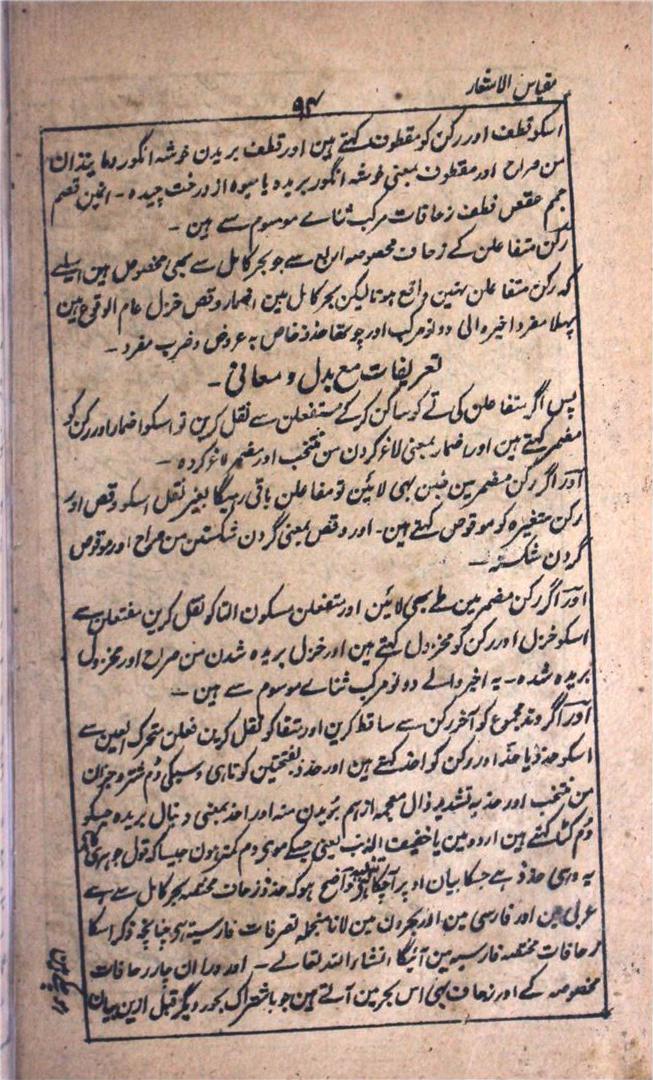 مقیاس الاشعار
۹۴
اسکو قطف اور رکن کو مقطوف کہتے ہین اور قطف بریدن خوشہ انگور و مانندان
من صراح اور مقطوف بمعنی خوشہ انگور بریدہ یا میوہ از درخت چیدہ ۔ انمین قصم
جمم عقص قطف زحافات مرکب ثناے موسوم سے ہین ۔
رکن متفاعلن کے زحاف مخصوصہ اربع سے جو بحر کامل سے بھی مخصوص ہین اسلیے
کہ رکن متفاعلن نہین واقع ہوتا لیکن بحر کامل مین اضمار وقص خزل عام الوقوع ہین
پہلا مفرد اخیر والی دونو مرکب اور چوتھا حذذ خاص بہ عروض و ضرب مفرد ۔
تعریفات مع بدل و معانی ۔
پس اگر متفاعلن کی تے کو ساکن کرکے مستفعلن سے نقل کرین تو اسکو اضمار اور رکن کو
مضمر کہتے ہین اور اضمار بمعنی لاغر کردن من منتخب اور مضمر لاغر کردہ ۔
اور اگر رکن مضمر مین خبن بھی لائین تو مفاعلن باقی رہیگا بغیر نقل اسکو وقص اور
رکن متغیرہ کو موقوص کہتے ہین ۔ اور وقص بمعنی گردن شکستن من صراح اور موقوص
گردن شکستہ ۔
اور اگر رکن مضمر مین طے بھی لائین اور متفعلن مسکون التا کو نقل کرین مفتعلن سے
اسکو خزل اور رکن کو مخزول کہتے ہین اور خزل بریدہ شدن من صراح اور مخزول
بریدہ شدہ ۔ یہ اخیر والے دونو مرکب ثناے موسوم سے ہین ۔
اور اگر وتد مجموع کو آخر رکن سے ساقط کرین اور متفا کو نقل کرین فعلن متحرک العین سے
اسکو حذذ یا حذّ اور رکن کو احذ کہتے ہین اور حذذ بفتحتین کوتاہی و سبکی دُم شتر و جزان
من منتخب اور حذ بہ تشدید ذال معجمہ از ہم بریدن منہ اور احذ بمعنی دنبال بریدہ جسکو
دُم کٹا کہتے ہین اردو مین یا خفیف الذنب یعنی جسکے موی دم کمتر ہون جیسا کہ قول جوہری کا
یہ وہی حذذ ہے جسکا بیان اوپر آچکا واضح ہو کہ حذذ زحافات مختصہ بحر کامل سے ہے
عربی مین اور فارسی مین اور بحرون مین لانا منجملہ تصرفات فارسیہ ہی چنانچہ ذکر اسکا
زحافات مختصہ فارسیہ مین آئیگا انشاء اللہ تعالے ۔ اور ورا ان چار زحافات
مخصوصہ کے اور زحاف بھی اس بحر مین آتے ہین جو باشتراک بحور دیگر قبل ازین بیان